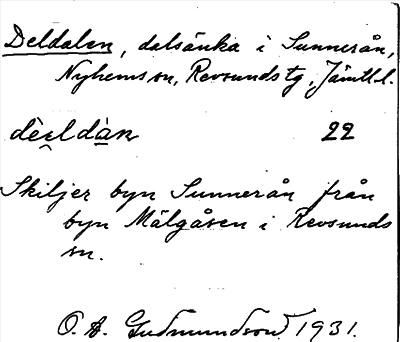 Deldalen, dalsänka i Sunnerån,
Nyhems sn, Revsunds tg, Jämtl. l.
dèldàn 22
Skiljer byn Sunnerån från
byn Mälgåsen i Revsunds
sn.
O. A. Gudmundson 1931.